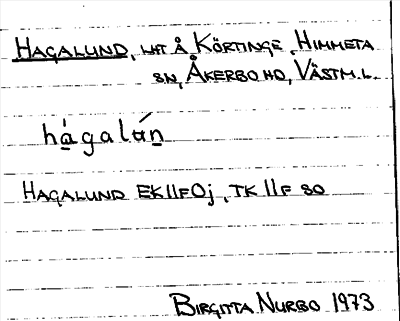 HAGALUND, LHT Å KÖRTINGE, HIMMETA
SN, ÅKERBO HD, VÄSTM.L.
hågalún
HAGALUND EK11F0j, TK 11F SO
BIRGITTA NURBO 1973